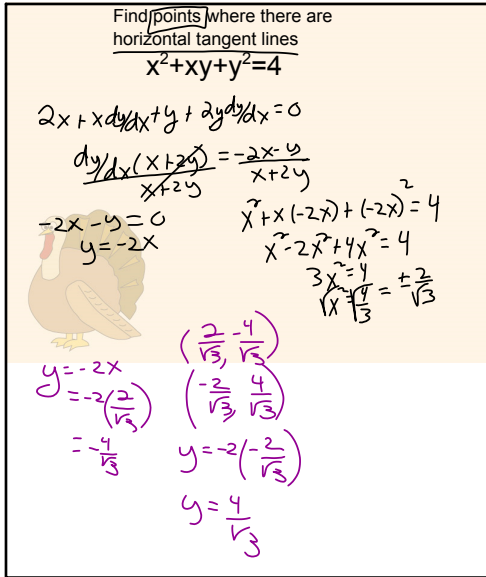 Find points where there are
horizontal tangent lines
x²+xy+y²=4
2x + x dy/dx + y + 2y dy/dx = 0
dy/dx (x+2y) / x+2y = -2x-y / x+2y
-2x-y=0
y=-2x
x²+x(-2x)+(-2x)²=4
x²-2x²+4x²=4
3x²=4
√x²=√4/3 = ±2/√3
(2/√3, -4/√3)
(-2/√3, 4/√3)
y=-2x
=-2(2/√3)
=-4/√3
y=-2(-2/√3)
y=4/√3